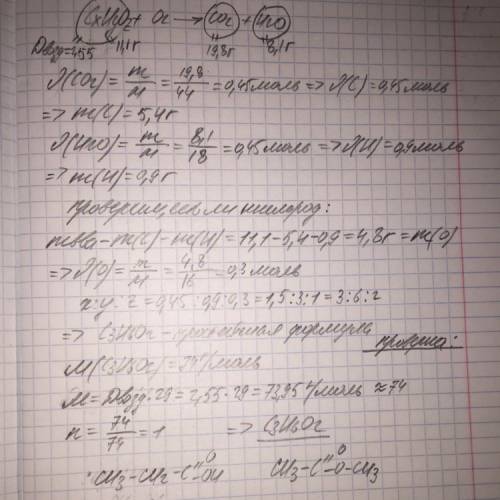 CxHyO2 + O2 → CO2 + H2O
Dвозд=2,55 11,1г 19,8г 8,1г
λ(CO2) = m/M = 19,8/44 = 0,45моль => λ(C) = 0,45моль
=> m(C) = 5,4г
λ(H2O) = m/M = 8,1/18 = 0,45моль => λ(H) = 0,9моль
=> m(H) = 0,9г
проверищ есть ли кислород:
mв-ва - m(C) - m(H) = 11,1 - 5,4 - 0,9 = 4,8г = m(O)
=> λ(O) = m/M = 4,8/16 = 0,3моль
x:y:z = 0,45:0,9:0,3 = 1,5:3:1 = 3:6:2
=> C3H6O2 - простейшая формула
проверка:
M(C3H6O2) = 74г/моль
M = Dвозд·29 = 2,55·29 = 73,95г/моль ≈ 74
n = 74/74 = 1 => C3H6O2
CH3-CH2-C=O-OH CH3-C=O-O-CH3